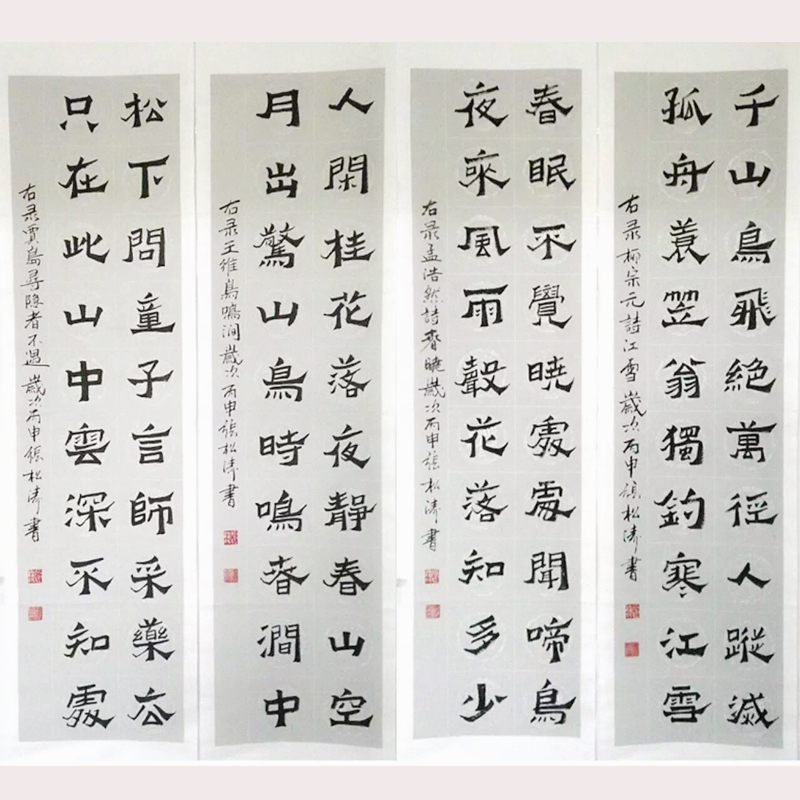 千山鳥飛絶萬徑人蹤滅
孤舟蓑笠翁獨釣寒江雪
右录柳宗元詩江雪歲次丙申張松涛書
春眠不覺曉處處聞啼鳥
夜來風雨聲花落知多少
右录孟浩然詩春曉歲次丙申張松涛書
人閑桂花落夜靜春山空
月出驚山鳥時鳴春澗中
右录王維鳥鳴澗歲次丙申張松涛書
松下問童子言師采藥去
只在此山中雲深不知處
右录賈島尋隐者不遇歲次丙申張松涛書